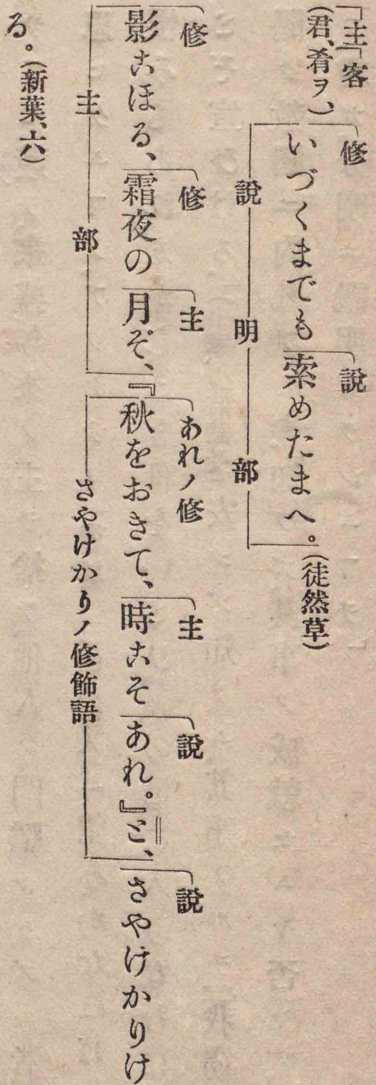 「主「客 修 説
(君、肴ヲ、)いづくまでも索めたまへ。(徒然草)
説明部
修 修 主 あれノ修 主 説 説
影こほる、霜夜の月ぞ、『秋をおきて、時こそあれ。』と、さやけかりけ
主部 さやけかりノ修飾語
る。(新葉、六)